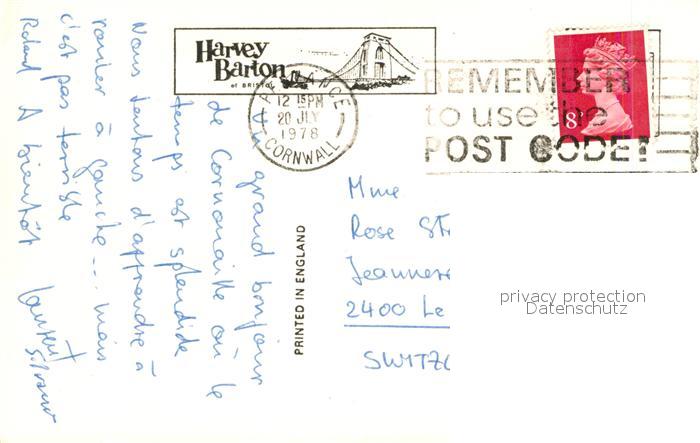 Harvey
Barton
of BRISTOL
PENZANCE
12 15PM
20 JLY
1978
CORNWALL
REMEMBER
to use the
POST CODE!
8P
Un grand bonjour
de Cornouaille où le
temps est splendide
Nous tentons d'apprendre à
rouler à gauche... mais
c'est pas terrible
Roland A bientôt Laurent
PRINTED IN ENGLAND
Mme
Rose
Jeanneret
2400 Le
SWITZ
privacy protection
Datenschutz